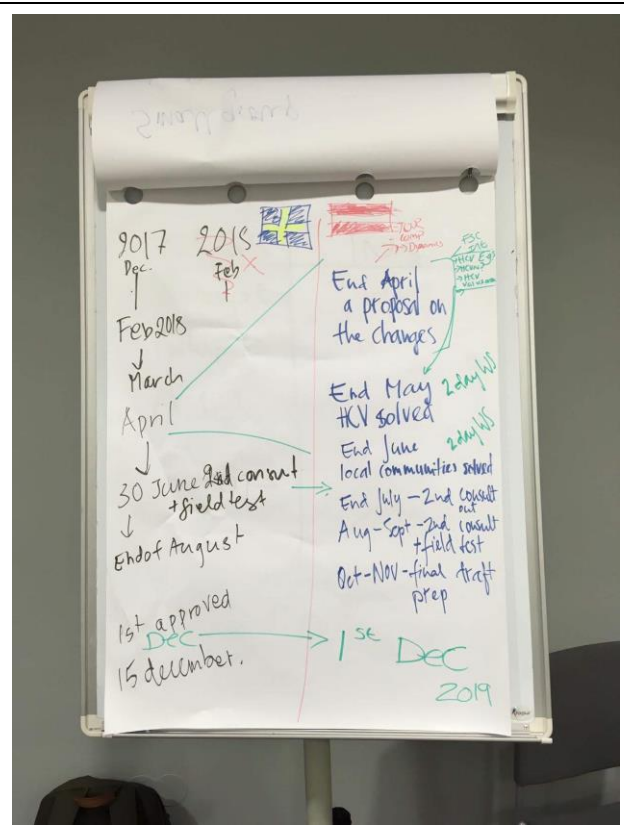 Small group
2017
Dec.
2018
Feb
?
Feb 2018
March
April
30 June 2nd consult
+ field test
End of August
1st approved
Dec
15 december.
→ Dynamics
FSC
End April
a proposal on
the changes
End May
HCV solved
2 day WS
End June
2 day WS
local communities solved
End July - 2nd consult
out
Aug-Sept - 2nd consult
+ field test
Oct-Nov - final traft
prep
1st Dec
2019